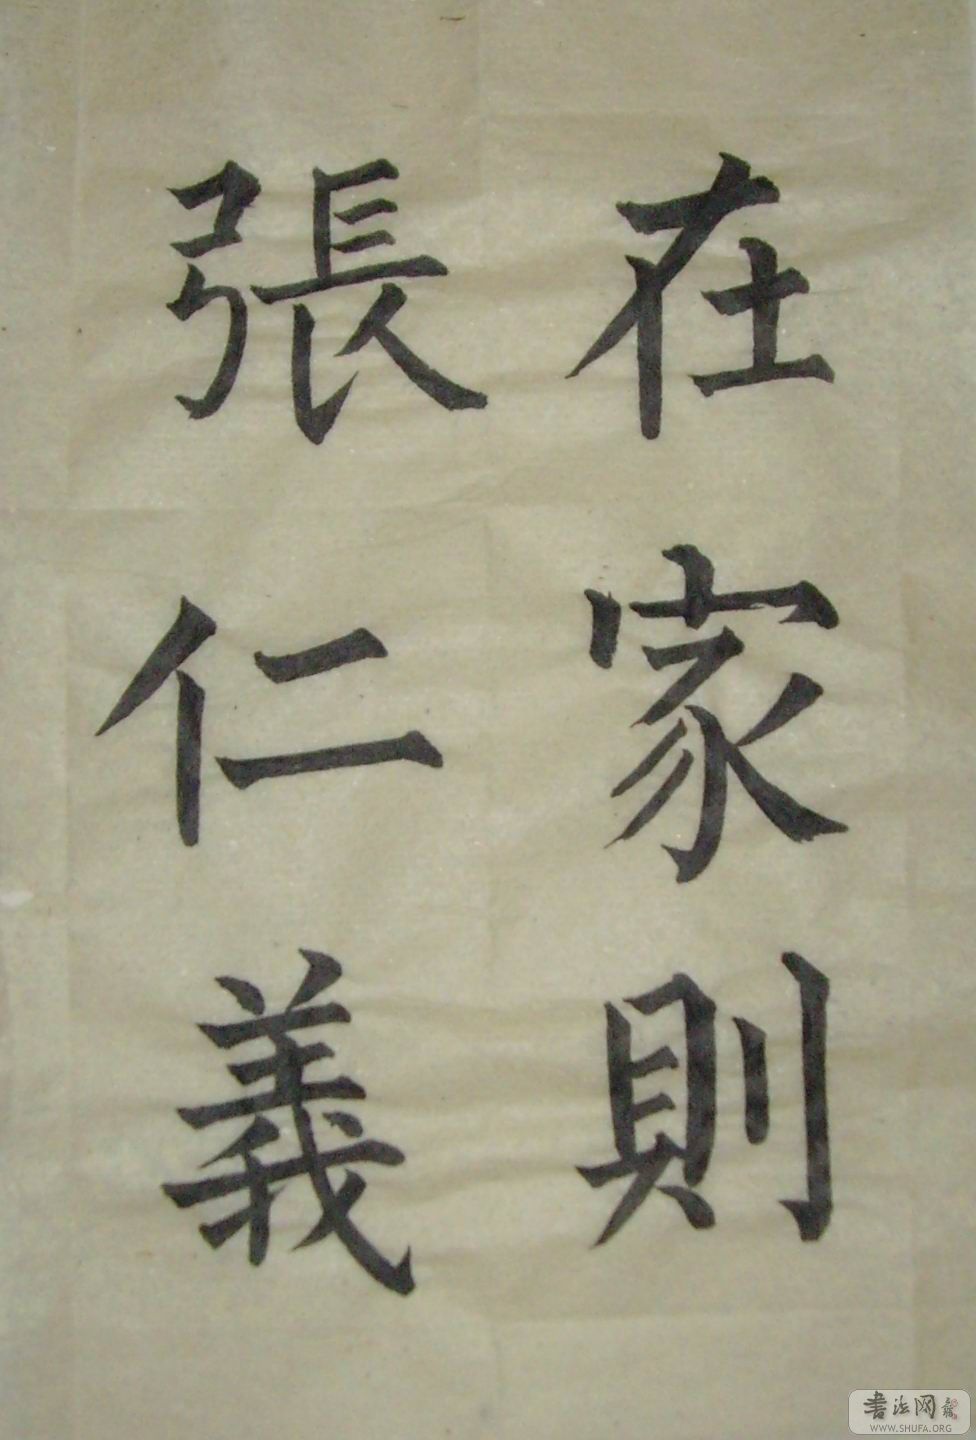 在家則
張仁義
書法网
WWW.SHUFA.ORG